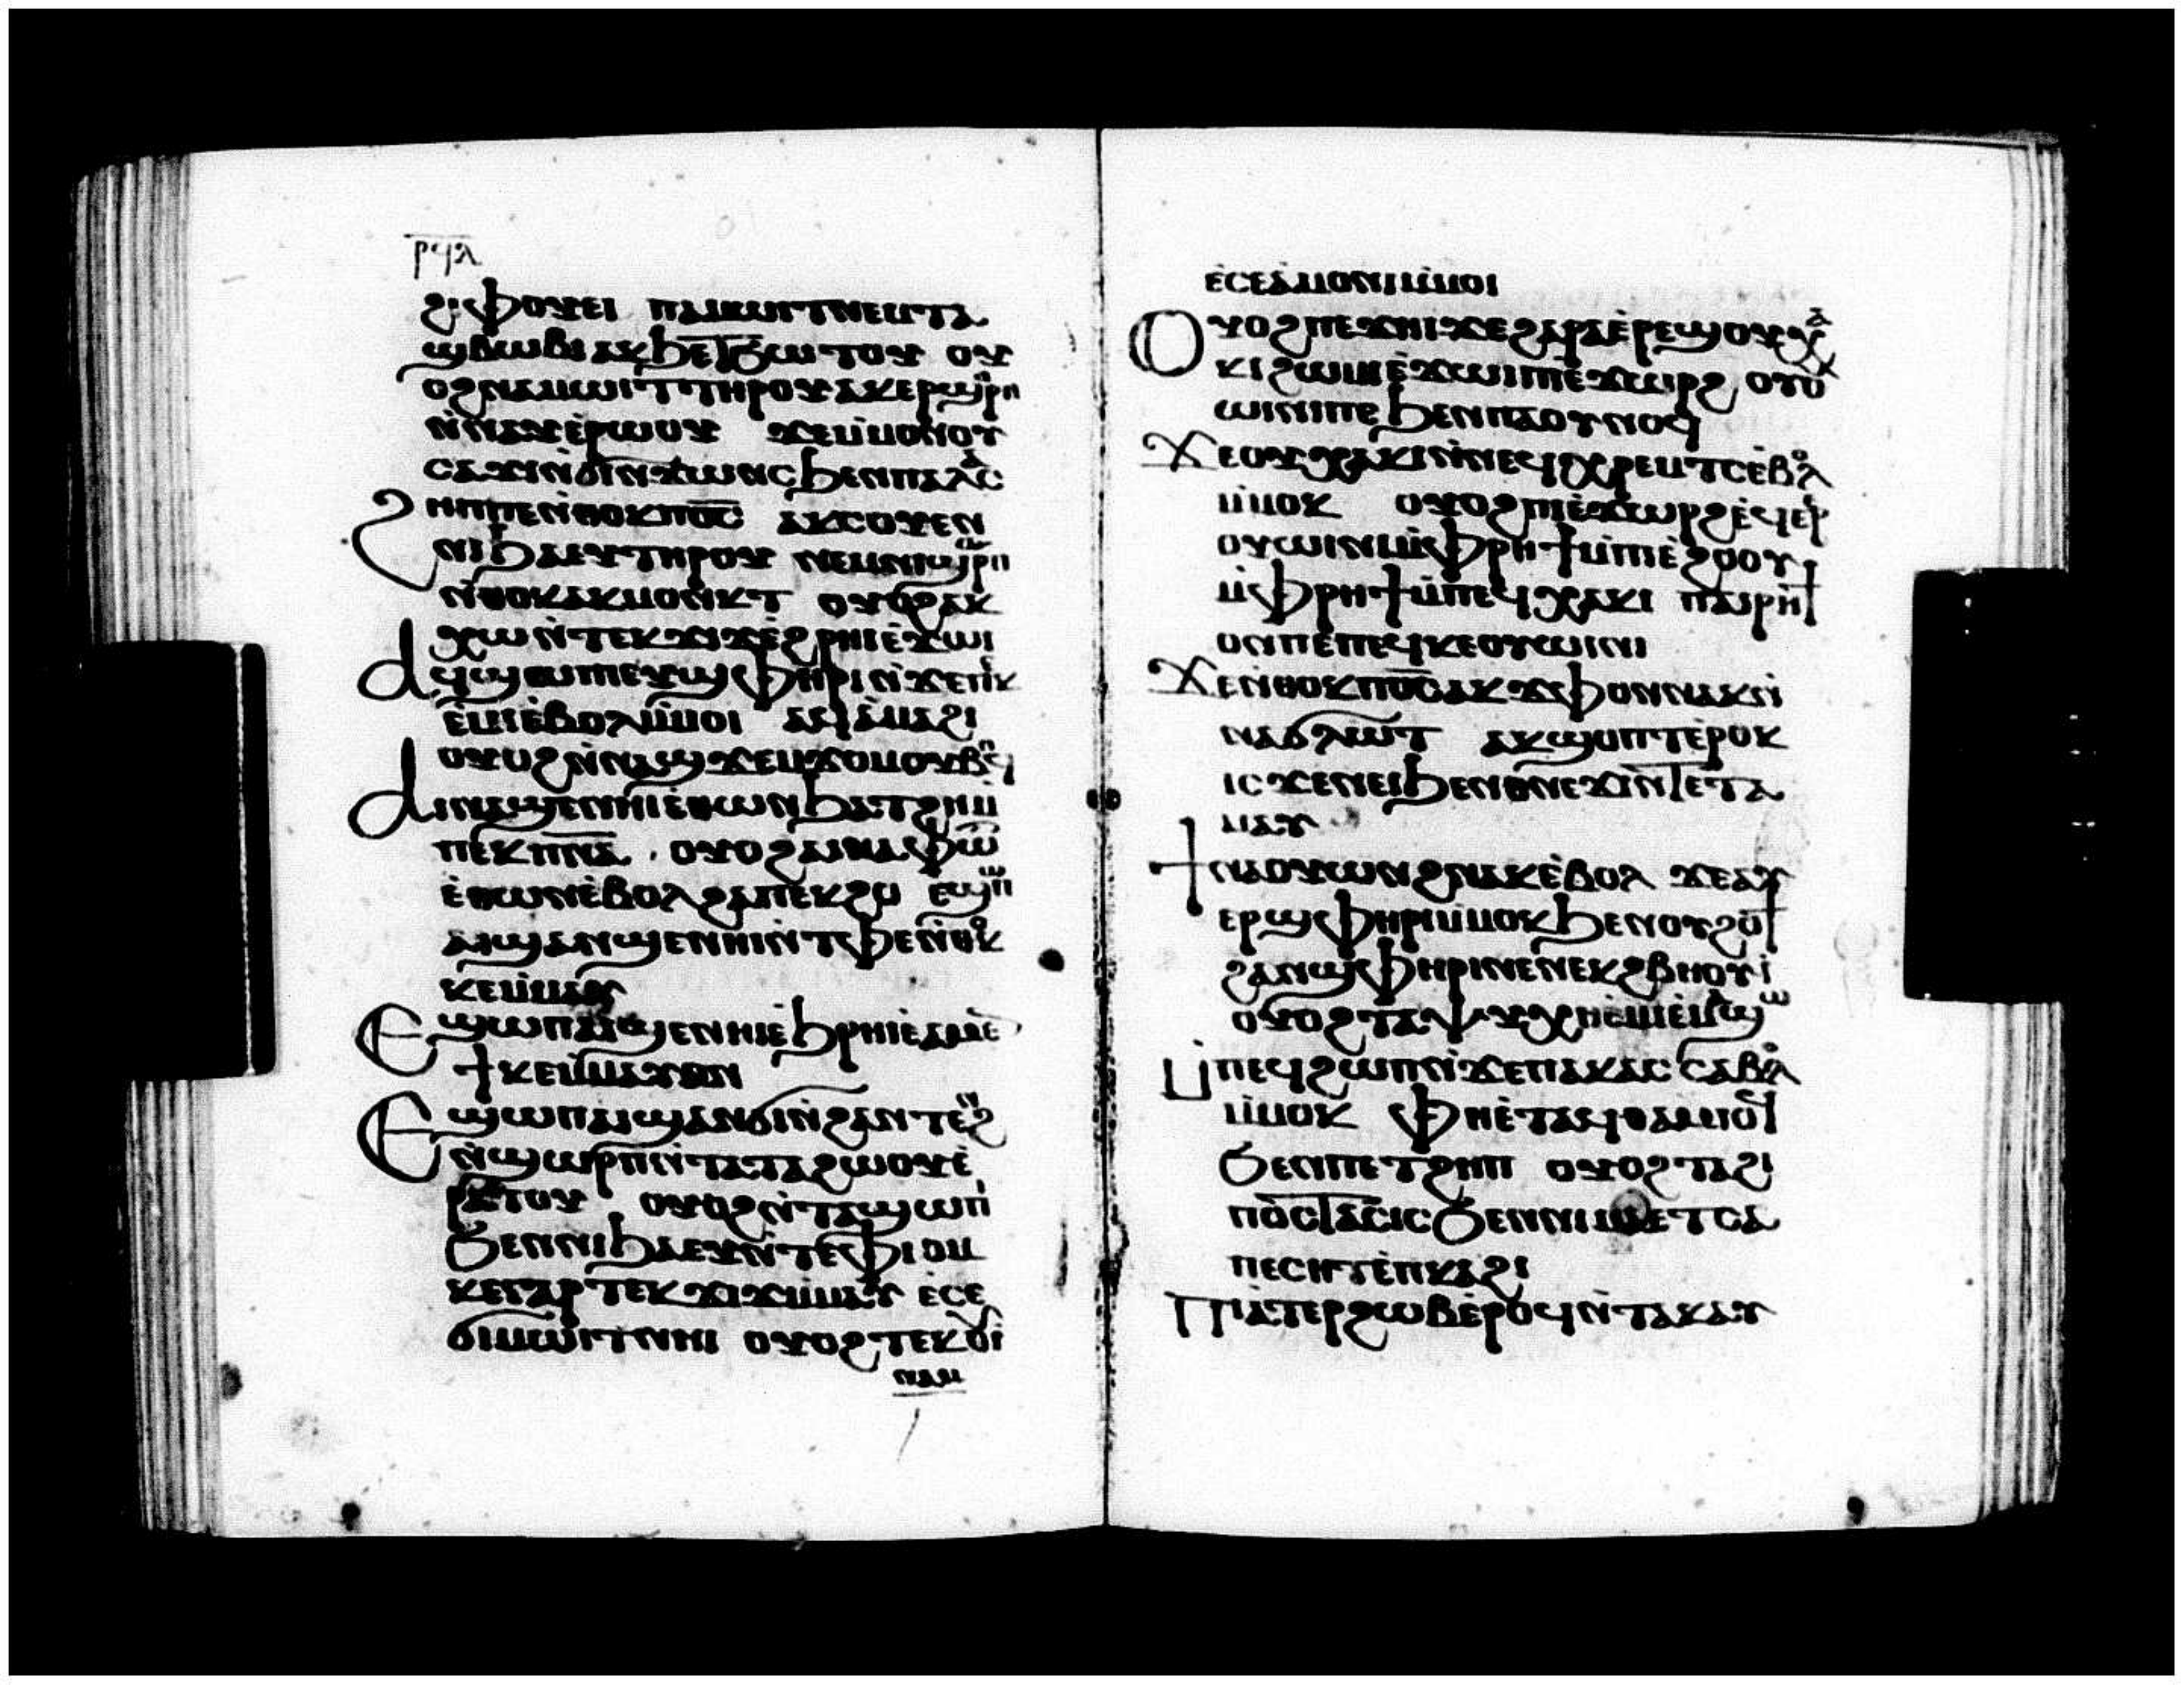 ⲣϥⲗ
ϩⲓⲫⲟⲩⲉⲓ ⲡⲁⲙⲱⲓⲧ ⲛⲉⲙ ⲧⲁ
ⲟϩ ⲛⲁⲙⲱⲓⲧ ⲧⲏⲣⲟⲩ ⲁⲕⲉⲣϣⲣⲡ
ⲛ̀ⲛⲁⲩ ⲉ̀ⲣⲱⲟⲩ ϫⲉ ⲙ̀ⲙⲟⲛ ⲟⲩ
ⲥⲁϫⲓ ⲛ̀ϭⲓⲛϫⲱⲛⲥ ϧⲉⲛ ⲡⲁⲗⲁⲥ
ϩⲏⲡⲡⲉ ⲛ̀ⲑⲟⲕ ⲡⲟ̅ⲥ̅ ⲁⲕⲥⲟⲩⲉⲛ
ⲛⲓϧⲁⲉⲩ ⲧⲏⲣⲟⲩ ⲛⲉⲙ ⲛⲓϣⲱⲣⲡ
ⲛ̀ⲑⲟⲕ ⲁⲕⲙⲟⲛⲕⲧ ⲟⲩⲟϩ ⲁⲕ
ⲭⲱ ⲛ̀ⲧⲉⲕϫⲓϫ ⲉ̀ϩⲣⲏⲓ ⲉ̀ϫⲱⲓ
ⲁϥϣⲱⲡ ⲉⲩϣⲫⲏⲣⲓ ⲛ̀ϫⲉ ⲡⲉⲕ
ⲉ̀ⲙⲓ ⲉ̀ⲃⲟⲗ ⲙ̀ⲙⲟⲓ ⲁϥⲁ̀ⲙⲁϩⲓ
ⲟⲩⲟϩ ⲛ̀ⲛⲁϣϫⲉⲙϫⲟⲙ ⲟⲩⲃⲏϥ
ⲁⲓⲛⲁϣⲉⲛⲏⲓ ⲉ̀ⲑⲱⲛ ϧⲁⲧϩⲏ ⲙ̀
ⲡⲉⲕⲡ̅ⲛ̅ⲁ̅ ⲟⲩⲟϩ ⲁⲓⲛⲁⲫⲱⲧ
ⲉ̀ⲑⲱⲛ ⲉ̀ⲃⲟⲗ ϩⲁ ⲡⲉⲕϩⲟ ⲉϣⲱⲡ
ⲁⲓϣⲁⲛϣⲉⲛⲏⲓ ⲛ̀ⲧⲫⲉ ⲛ̀ⲑⲟⲕ
ⲕⲉⲙ̀ⲙⲁⲩ
ⲉϣⲱⲡ ⲁⲓϣⲉⲛⲏⲓ ⲉ̀ϧⲣⲏⲓ ⲉ̀ⲁⲙⲉ
ϯ ⲕⲉⲙ̀ⲙⲁⲩ ⲟⲛ
ⲉϣⲱⲡ ⲁⲓϣⲁⲛϭⲓ ⲛ̀ϩⲁⲛⲧⲉⲛϩ
ⲛ̀ϣⲱⲣⲡ ⲛ̀ⲧⲁⲧⲁϩⲱⲟⲩ ⲉ̀
ⲣⲁⲧⲟⲩ ⲟⲩⲟϩ ⲛ̀ⲧⲁϣⲱⲡⲓ
ϧⲉⲛ ⲛⲓϧⲁⲉⲩ ⲛ̀ⲧⲉ ⲫⲓⲟⲙ
ⲕⲉⲅⲁⲣ ⲧⲉⲕϫⲓϫ ⲙ̀ⲙⲁⲩ ⲉ̀ⲥⲉ
ϭⲓⲙⲱⲓⲧ ⲛⲏⲓ ⲟⲩⲟϩ ⲧⲉⲕⲟⲩⲓ
ⲛⲁⲙ
ⲉ̀ⲥⲉⲁ̀ⲙⲟⲛⲓ ⲙ̀ⲙⲟⲓ
ⲟⲩⲟϩ ⲡⲉϫⲏⲓ ϫⲉ ϩⲁⲣⲁ ⲉ̀ⲣⲉ ⲡϣ ⲟⲩⲭⲁ
ⲕⲓ ϩⲱⲙⲓ ⲉ̀ϫⲱⲓ ⲡⲓⲉ̀ϫⲱⲣϩ ⲟⲩⲟ
ⲱⲓⲛⲓ ⲡⲉ ϧⲉⲛ ⲡⲁⲟⲩⲛⲟϥ
ϫⲉ ⲟⲩ ⲭⲁⲕⲓ ⲛ̀ⲛⲉϥⲭⲣⲉⲙⲧⲥ ⲉ̀ⲃⲟⲗ
ⲙ̀ⲙⲟⲕ ⲟⲩⲟϩ ⲡⲓⲉ̀ϫⲱⲣϩ ⲉ̀ϥⲉ̀ⲉⲣ
ⲟⲩⲱⲓⲛⲓ ⲙ̀ⲫⲣⲏϯ ⲙ̀ⲡⲓⲉ̀ϩⲟⲟⲩ
ⲙ̀ⲫⲣⲏϯ ⲙ̀ⲡⲉϥⲭⲁⲕⲓ ⲡⲁⲓⲣⲏϯ
ⲟⲛ ⲡⲉ ⲡⲉϥⲕⲉⲟⲩⲱⲓⲛⲓ
ϫⲉ ⲛ̀ⲑⲟⲕ ⲡⲟ̅ⲥ̅ ⲁⲕϫⲫⲟ ⲛⲛⲁⲕ ⲛ̀
ⲛⲁϭⲗⲱⲧ ⲁⲕϣⲟⲡⲧ ⲉ̀ⲣⲟⲕ
ⲓⲥϫⲉⲛ ⲉⲓϧⲉⲛ ⲑⲛⲉϫⲓ ⲛ̀ⲧⲉ ⲧⲁ
ⲙⲁⲩ
ϯⲛⲁⲟⲩⲱⲛϩ ⲛⲁⲕ ⲉ̀ⲃⲟⲗ ϫⲉ ⲁⲩ
ⲉⲣϣⲫⲏⲣⲓ ⲙ̀ⲙⲟⲕ ϧⲉⲛ ⲟⲩϩⲟϯ
ϩⲁⲛϣⲫⲏⲣⲓ ⲛⲉ ⲛⲉⲕϩⲃⲏⲟⲩⲓ̀
ⲟⲩⲟϩ ⲧⲁⲯⲩⲭⲏ ⲉ̀ⲙⲓ ⲉ̀ⲙⲁϣⲱ
ⲙ̀ⲡⲉϥϩⲱⲡ ⲛ̀ϫⲉ ⲡⲁⲕⲁⲥ ⲥⲁⲃⲟⲗ
ⲙ̀ⲙⲟⲕ ⲫⲏⲉ̀ⲧⲁϥⲑⲁⲙⲓⲟϥ
ϧⲉⲛ ⲡⲉⲧϩⲏⲡ ⲟⲩⲟϩ ⲧⲁϩⲓ
ⲡⲟⲥⲧⲁⲥⲓⲥ ϧⲉⲛ ⲛⲓⲙⲁ ⲉⲧⲥⲁ
ⲡⲉⲥⲏⲧ ⲉ̀ⲡⲕⲁϩⲓ
ⲡⲓⲁⲧⲉⲣϩⲱⲃ ⲉ̀ⲣⲟϥ ⲛ̀ⲧⲁⲕⲁⲩ